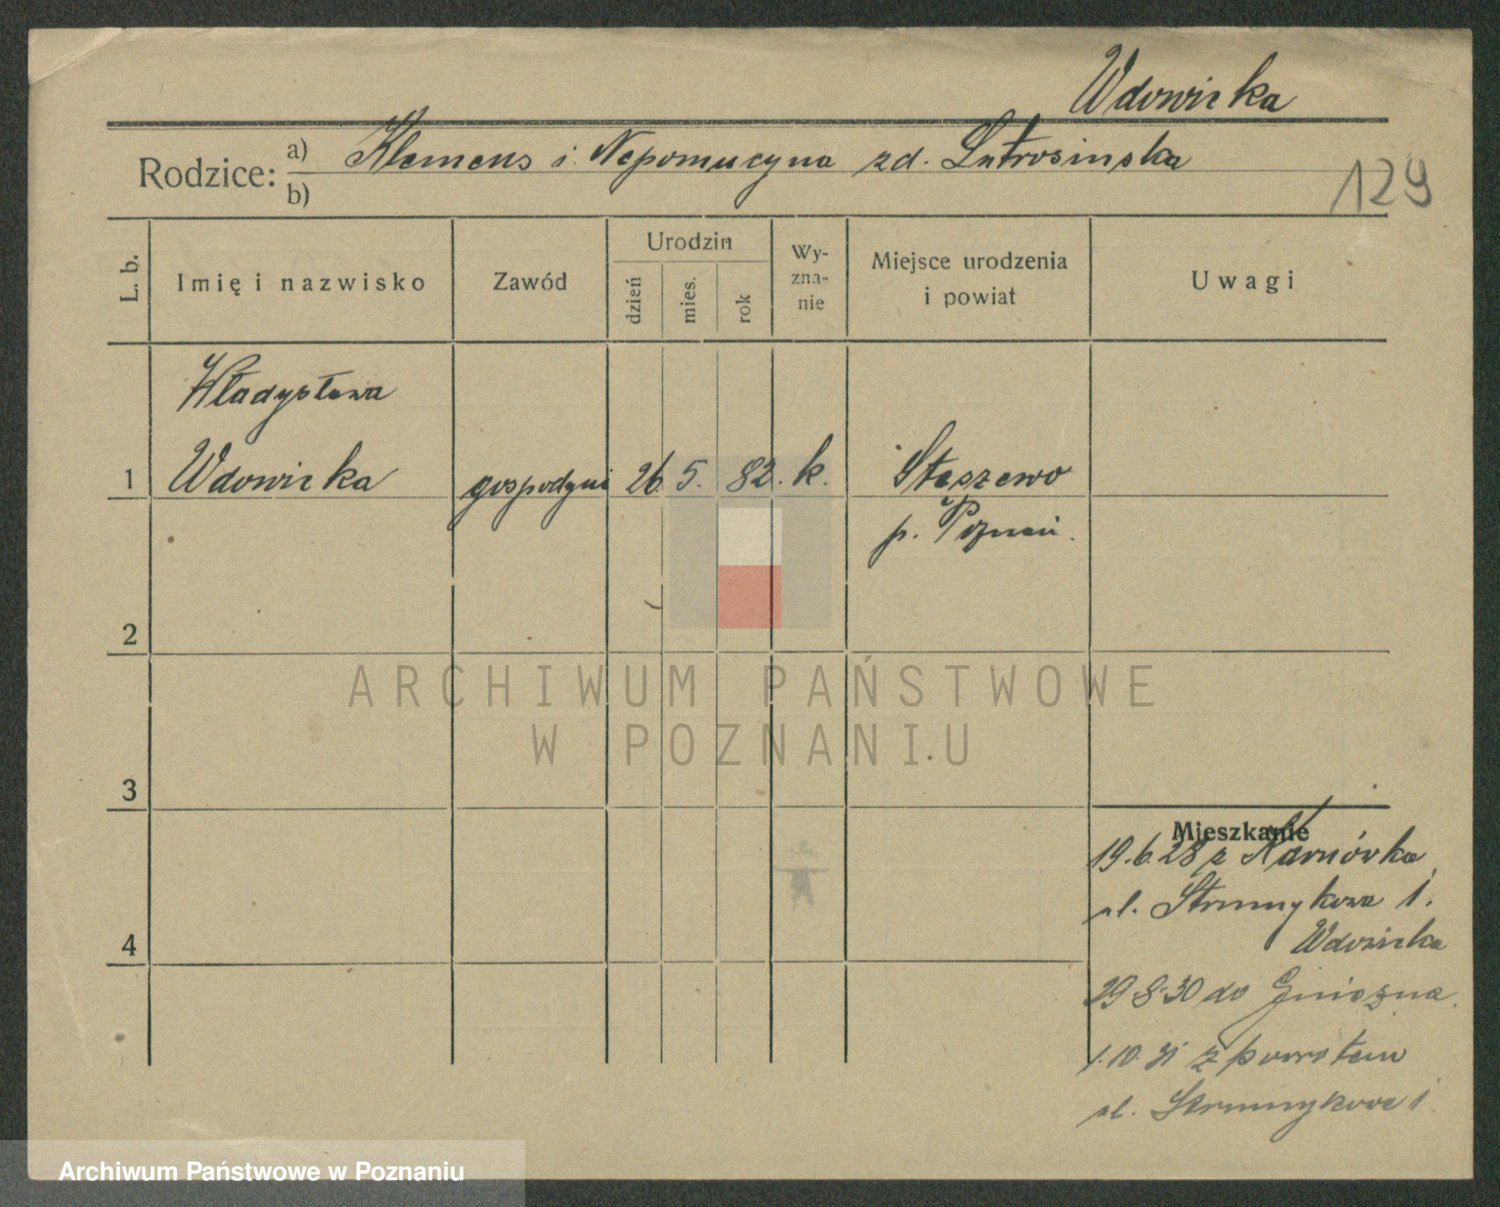 Wdowicka
Rodzice: a) Klemens i Nepomucyna zd. Lutrosinska
b)
129
L. b.
Imię i nazwisko
Zawód
Urodzin
dzień
mies.
rok
Wy-
zna-
nie
Miejsce urodzenia
i powiat
Uwagi
Władysława
1 Wdowicka gospodyni 26. 5. 82. k. Stęszewo
p. Poznań.
2
3
4
Mieszkanie
19.6.28 z
ul. Strumykowa 1.
Wdowicka
29.8.30 do Gniezna.
1.10.31 z powrotem
ul. Strumykowa 1
ARCHIWUM PAŃSTWOWE
W POZNANIU
Archiwum Państwowe w Poznaniu